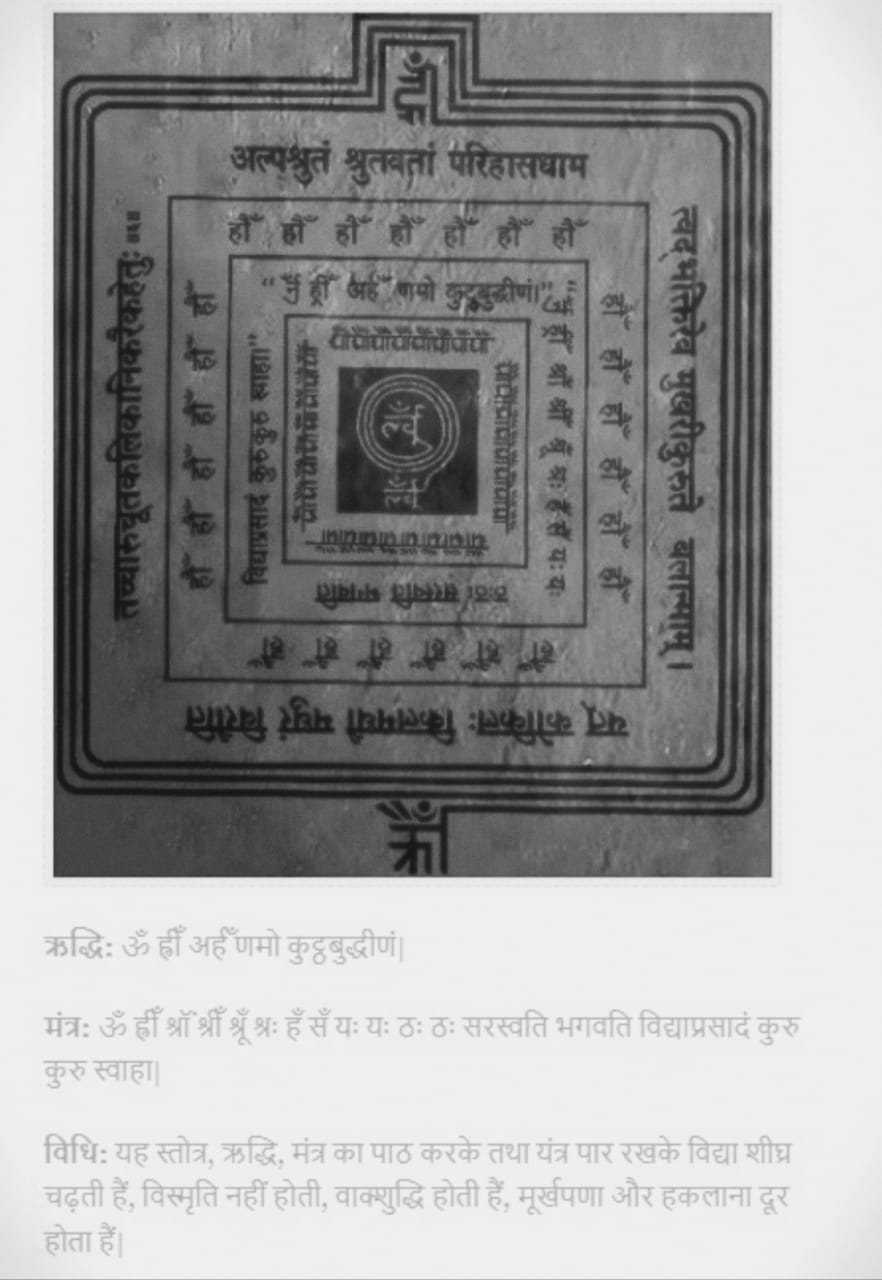 अल्पश्रुतं श्रुतवतां परिहासधाम
त्वद्भक्तिरेव मुखरीकुरुते बलान्माम् ।
यत् कोकिलः किलमधौ मधुरं विरौति
तच्चारुचूतकलिकानिकरैकहेतुः ॥६॥
ह्रौँ ह्रौँ ह्रौँ ह्रौँ ह्रौँ ह्रौँ ह्रौँ
ह्रीँ अर्हँ णमो कुट्ठबुद्धीणं।”
ह्रीँ श्राँ श्रीँ श्रूँ श्रः हँ सँ यः यः
ठःठः सरस्वति भगवति
विद्याप्रसादं कुरुकुरु स्वाहा।”
ऋद्धि: ॐ ह्रीँ अर्हँ णमो कुट्ठबुद्धीणं|
मंत्र: ॐ ह्रीँ श्राँ श्रीँ श्रूँ श्रः हँ सँ यः यः ठः ठः सरस्वति भगवति विद्याप्रसादं कुरु
कुरु स्वाहा|
विधि: यह स्तोत्र, ऋद्धि, मंत्र का पाठ करके तथा यंत्र पार रखके विद्या शीघ्र
चढ़ती हैं, विस्मृति नहीं होती, वाक्शुद्धि होती हैं, मूर्खपणा और हकलाना दूर
होता हैं|